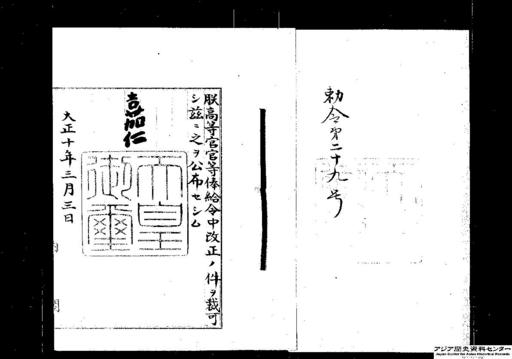 勅令第二十九号
朕高等官官等俸給令中改正ノ件ヲ裁可
シ茲ニ之ヲ公布セシム
嘉仁
天皇
御璽
大正十年三月三日
内閣
アジア歴史資料センター
Japan Center for Asian Historical Records